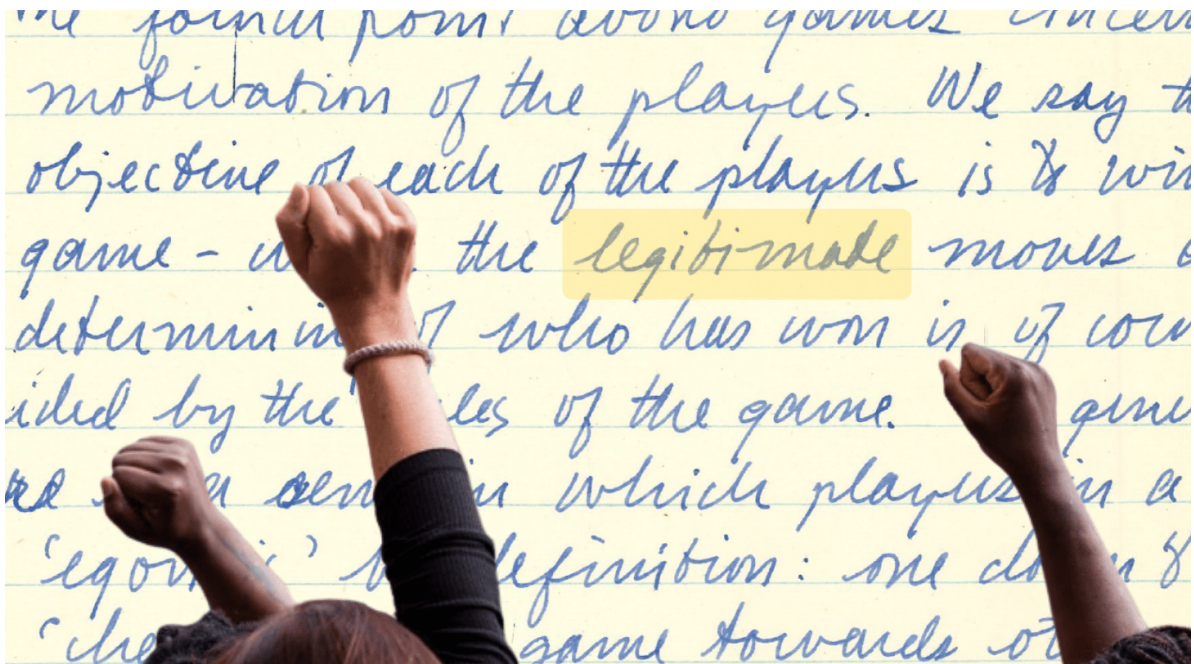 the formal point about games concern
motivation of the players. We say
objective of each of the players is to win
game - the legitimate moves
determining of who has won is of
ided by the rules of the game.
in which players in a
definition: one
game towards